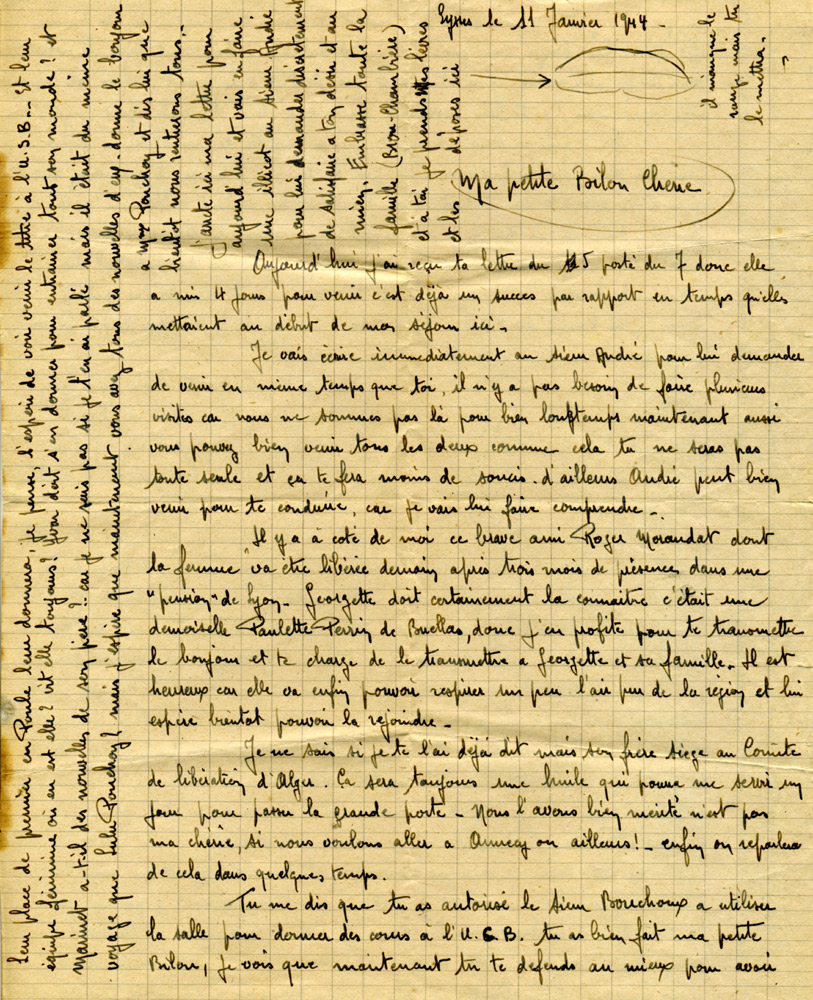 Eysses le 11 Janvier 1944 -
il manque le
rouge mais tu
le mettra.
Ma petite Bilou Cherie
Aujourd'hui j'ai reçu ta lettre du 5 posté du 7 donc elle
a mis 4 jours pour venir c'est déjà un succes par rapport en temps qu'elles
mettaient au début de mon séjour ici -
Je vais écrire immediatement au sieur André pour lui demander
de venir en même temps que toi, il n'y a pas besoin de faire plusieurs
visites car nous ne sommes pas là pour bien longtemps maintenant aussi
vous pouvez bien venir tous les deux comme cela tu ne seras pas
toute seule et ça te fera moins de soucis. d'ailleurs André peut bien
venir pour te conduire, car je vais lui faire comprendre -
Il y a à coté de moi ce brave ami Roger Morandat dont
la femme va être libérée demain après trois mois de présence dans une
"pension" de Lyon - Georgette doit certainement la connaitre c'était une
demoiselle Paulette Perrin de Buellas, donc j'en profite pour te transmettre
le bonjour et te charge de le transmettre a Georgette et sa famille. Il est
heureux car elle va enfin pouvoir respirer un peu l'air pur de la région et lui
espère bientot pouvoir la rejoindre -
Je ne sais si je te l'ai déjà dit mais son frère siege au Comite
de libération d'Alger. Ça sera toujours une huile qui pourra me servir un
jour pour passer la grande porte - Nous l'avons bien mérité n'est pas
ma chérie, si nous voulons aller a Annecy ou ailleurs! - enfin on reparlera
de cela dans quelques temps.
Tu me dis que tu as autorisé le sieur Bouchoux a utiliser
la salle pour donner des cours à l'U.S.B. tu as bien fait ma petite
Bilou, je vois que maintenant tu te defends au mieux pour avoir
leur place de premier en Poule leur donnera, je pense, l'espoir de voir venir le titre à l'U.S.B... Et leur
équipe féminine ou en est elle? vit elle toujours? Yvon doit s'en donner pour entrainer tout son monde? et
Marinet a-t-il des nouvelles de son père?. car je ne sais pas si je t'en ai parlé mais il était du même
voyage que Lulu Ponchoy? mais j'espère que maintenant vous avez tous des nouvelles d'eux. donne le bonjour
a Mme Ponchoy et dis lui que
bientôt nous rentrerons tous. -
J'arrête ici ma lettre pour
aujourd'hui et vais en faire
une illicot au sieur André
pour lui demander discrètement
de satisfaire a ton désir et au
mien. Embrasse toute la
famille (Brou-Chambière)
et à toi je prends tes lèvres
et les déposes ici